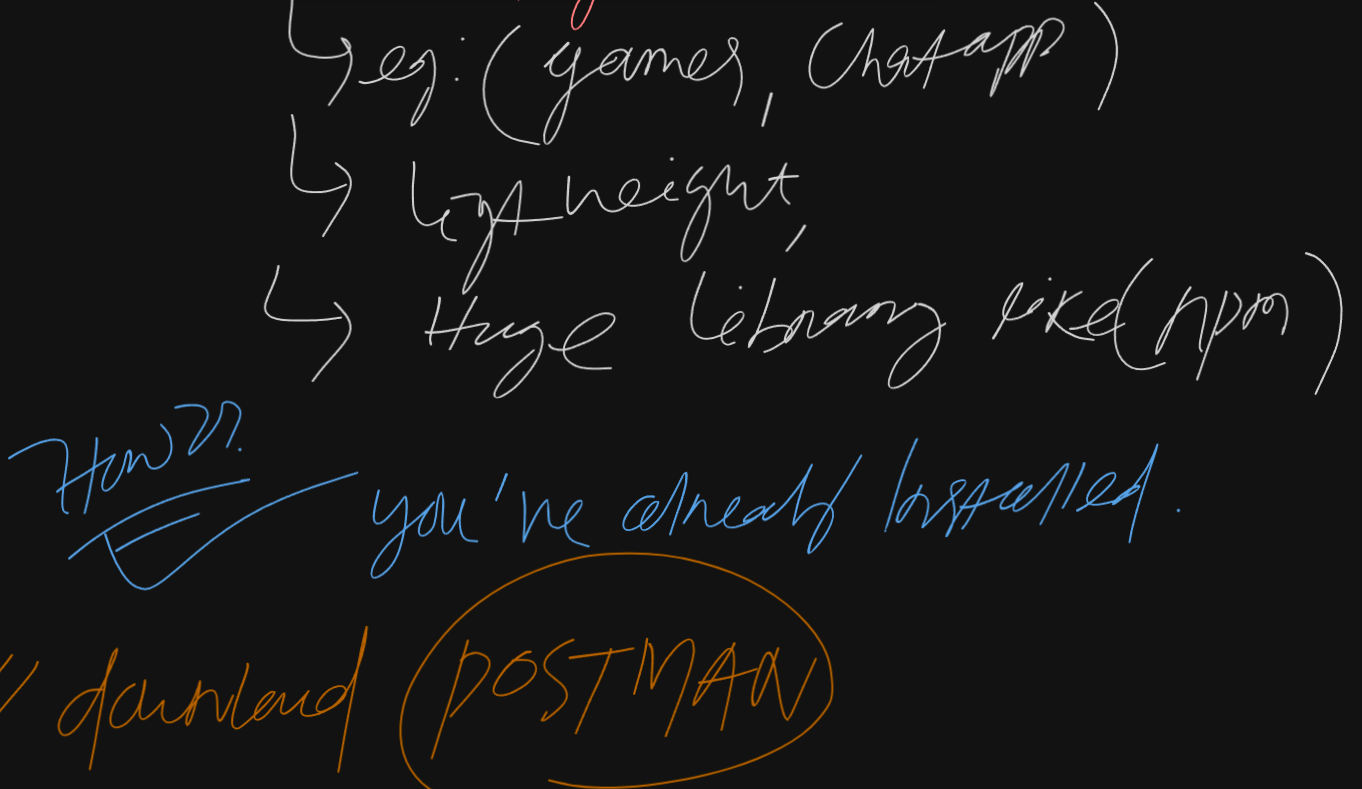 ↳ eg: (games, Chat app)
↳ Lightweight,
↳ Huge library like (npm)
How??
you've already Installed.
// download POSTMAN